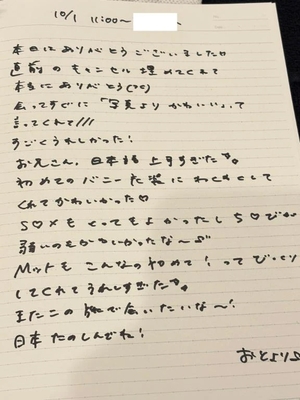 10/1 11:00〜
本日はありがとうございました♡
直前のキャンセル埋めてくれて
本当にありがとう
会ってすぐに「写真よりかわいい」って
言ってくれて///
すごくうれしかった!
お兄さん、日本語上手すぎた
初めてのバニー衣装にわくわくして
くれてかわいかった♡
S♡Xもとってもよかったし
弱いのもかわいかったな〜
マットもこんなの初めて!ってびっくり
してくれてうれしすぎた
またこの旅で会いたいな〜!
日本たのしんでね!
おとより